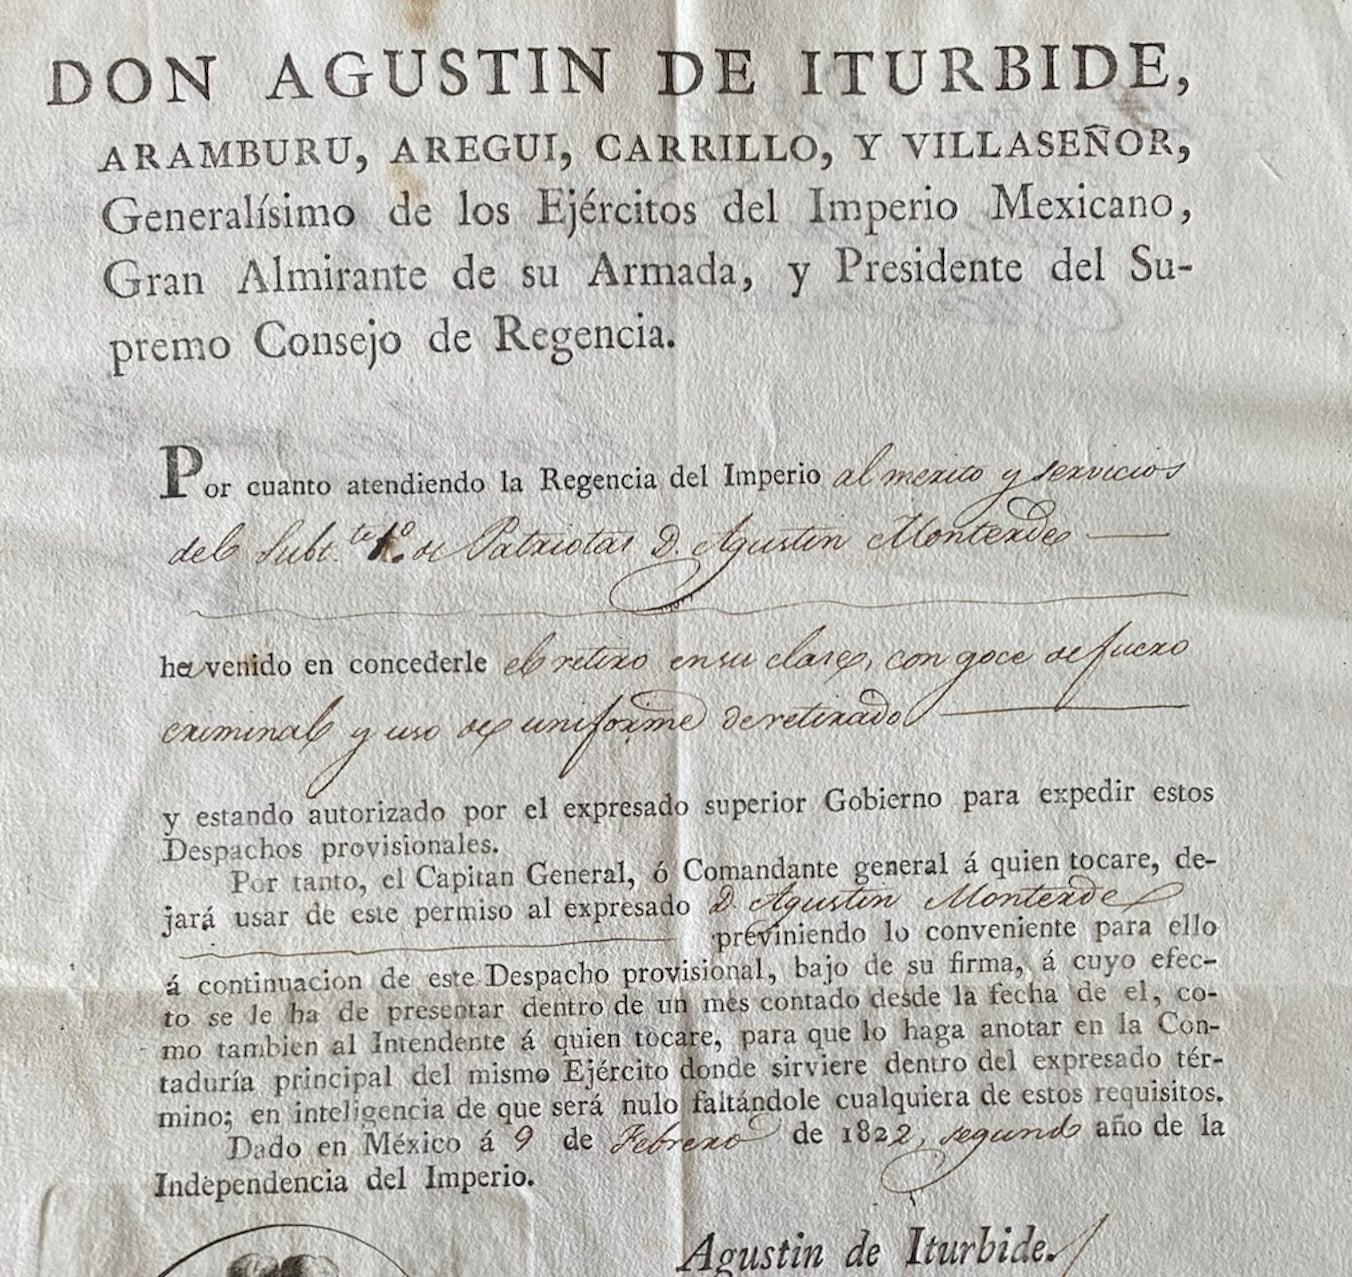 DON AGUSTIN DE ITURBIDE,
ARAMBURU, AREGUI, CARRILLO, Y VILLASEÑOR,
Generalísimo de los Ejércitos del Imperio Mexicano,
Gran Almirante de su Armada, y Presidente del Su-
premo Consejo de Regencia.
Por cuanto atendiendo la Regencia del Imperio al merito y servicios
del Subt.te 1.o de Patriotas D. Agustin Monterde
ha venido en concederle el retiro en su clase, con goce de fuero
criminal y uso de uniforme de retirado
y estando autorizado por el expresado superior Gobierno para expedir estos
Despachos provisionales.
Por tanto, el Capitan General, ó Comandante general á quien tocare, de-
jará usar de este permiso al expresado D. Agustin Monterde
previniendo lo conveniente para ello
á continuacion de este Despacho provisional, bajo de su firma, á cuyo efec-
to se le ha de presentar dentro de un mes contado desde la fecha de el, co-
mo tambien al Intendente á quien tocare, para que lo haga anotar en la Con-
taduría principal del mismo Ejército donde sirviere dentro del expresado tér-
mino; en inteligencia de que será nulo faltándole cualquiera de estos requisitos.
Dado en México á 9 de Febrero de 1822, segundo año de la
Independencia del Imperio.
Agustin de Iturbide.